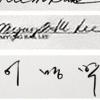 Myung Bak Lee
MYUNG BAK LEE
이 명 박